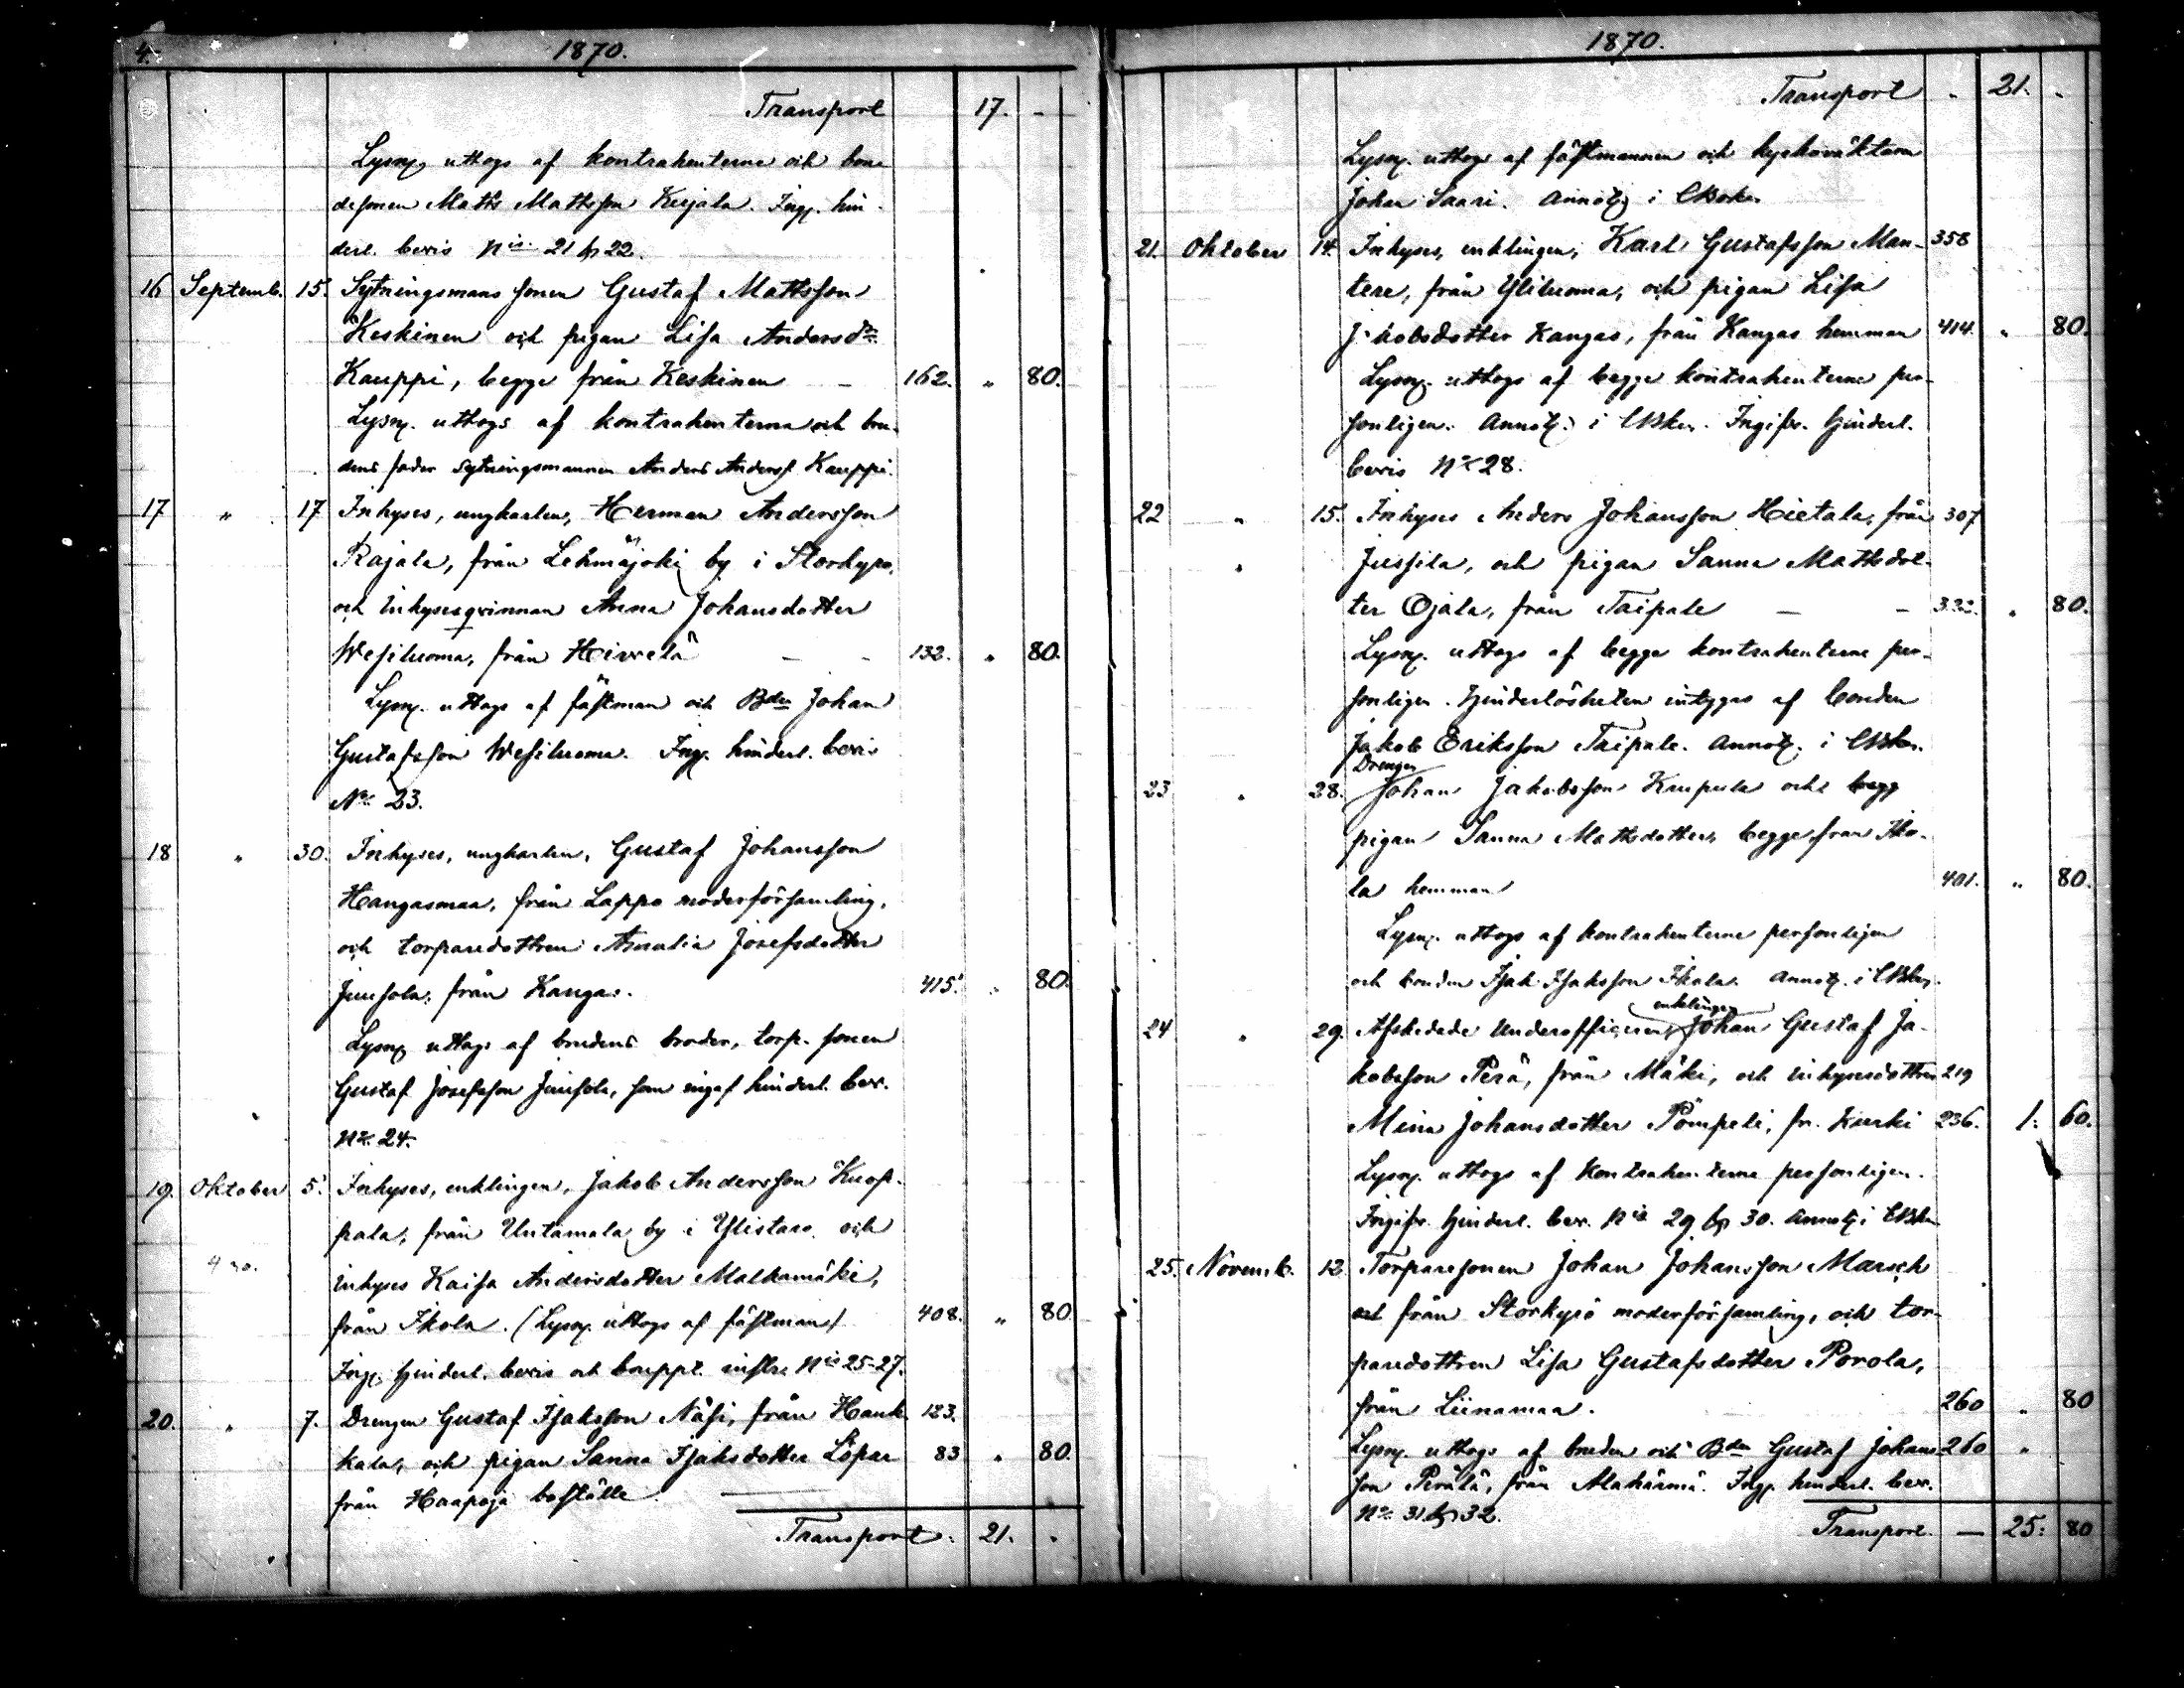 4.
1870.
Transport 17. -
Lysng uttogs af kontrahenterne och bon-
desonen Matts Mattsson Kujala. Ingp. hin-
derl. bevis Nis 21 & 22.
16 Septemb. 15. Sytningsmans sonen Gustaf Mattsson
Keskinen och pigan Lisa Andersdr
Kauppi, begge från Keskinen - 162. " 80.
Lysng. uttogs af kontrahenterna och bru-
dens fader sytningsmannen Anders Anderss. Kauppi.
17 " 17 Inhyses, ungkarlen, Herman Andersson
Rajala, från Lehmäjoki by i Storkyro,
och Inhysesqvinnan Anna Johansdotter
Wesiluoma, från Hirvelä - - 132. " 80.
Lysng. uttogs af fästman och Bden Johan
Gustafsson Wesiluoma. Ingp. hinderl. bevis
No 23.
18 " 30. Inhyses, ungkarlen, Gustaf Johansson
Hangasmaa, från Lappo moderförsamling,
och torparedottren Amalia Josefsdotter
Junsola, från Kangas. 415. " 80.
Lysng uttogs af brudens broder, torp. sonen
Gustaf Josefsson Junsola, som ingaf hinderl. bev.
No 24.
19. Oktober 5. Inhyses, enklingen, Jakob Andersson Knop-
pala, från Untamala by i Ylistaro och
inhyses Kaisa Andersdotter Malkamäki,
från Ikola. (Lysng. uttogs af fästman) 408. " 80
Ingp. hinderl. bevis och bouppt. instr. Nis 25-27.
20. " 7. Drengen Gustaf Isaksson Näsi, från Hank- 123.
kala, och pigan Sanna Isaksdotter Löpar 83 " 80.
från Haapoja boställe.
Transport. 21. .
1870.
Transport . 21. .
Lysng. uttogs af fästmannen och kyrkoväktaren
Johan Saari. Annotg i CBoken
21. Oktober 14. Inhyses, enklingen, Karl Gustafsson Man- 358
tere, från Yliluoma, och pigan Lisa
Jakobsdotter Kangas, från Kangas hemman 414. " 80.
Lysng. uttogs af begge kontrahenterne per-
sonligen. Annotg. i CBken. Ingifv. hinderl.
bevis No 28.
22 " 15. Inhyses Anders Johansson Hietala, från 307
Jussila, och pigan Sanna Mattsdot-
ter Ojala, från Taipale - - 332. " 80.
Lysng. uttogs af begge kontrahenterne per-
sonligen. Hinderlösheten intygas af bonden
Jakob Eriksson Taipale. Annotg. i CBken.
Drengen
23 " 28. Johan Jakobsson och begg
pigan Sanna Mattsdotter, begge från Iko-
la hemman 401. " 80.
Lysng. uttogs af kontrahenterne personligen
och bonden Isak Isaksson Ikola. Annotg. i CBken.
enklingen
24 " 29. Afskedade Underofficeren, Johan Gustaf Ja-
kobsson Perä, från Mäki, och inhysesdottren 219
Mina Johansdotter Pömpeli, fr. Kurki 236. 1. 60.
Lysng. uttogs af kontrahenterne personligen.
Ingifv. hinderl. bev. Nis 29 & 30. Annotg i CBken
25. Novemb. 12. Torparesonen Johan Johansson Marsch
och från Storkyrö moderförsamling, och tor-
paredottren Lisa Gustafsdotter Porola,
från Liinamaa. 260 " 80
Lysng. uttogs af bruden och Bden Gustaf Johans- 260 "
son Perälä, från Alahärmä. Ingp. hinderl. bev.
No 31 & 32.
Transport. — 25: 80